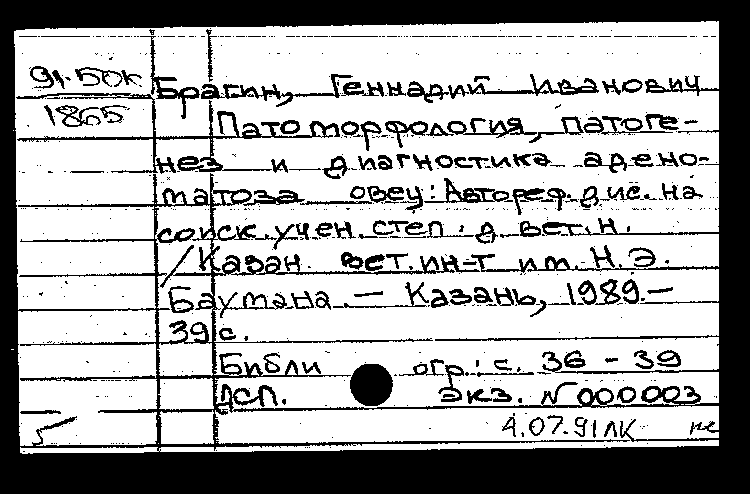 91-50к Брагин, Геннадий Иванович
1865 Патоморфология, патоге-
нез и диагностика адено-
матоза овец: Автореф. дис. на
соиск. учен. степ. д. вет. н.
/Казан. вет. ин-т им. Н.Э.
Баумана. — Казань, 1989. —
39 с.
Библиогр.: с. 36 - 39
ДСП. Экз. № 000003
4.07.91 ЛК